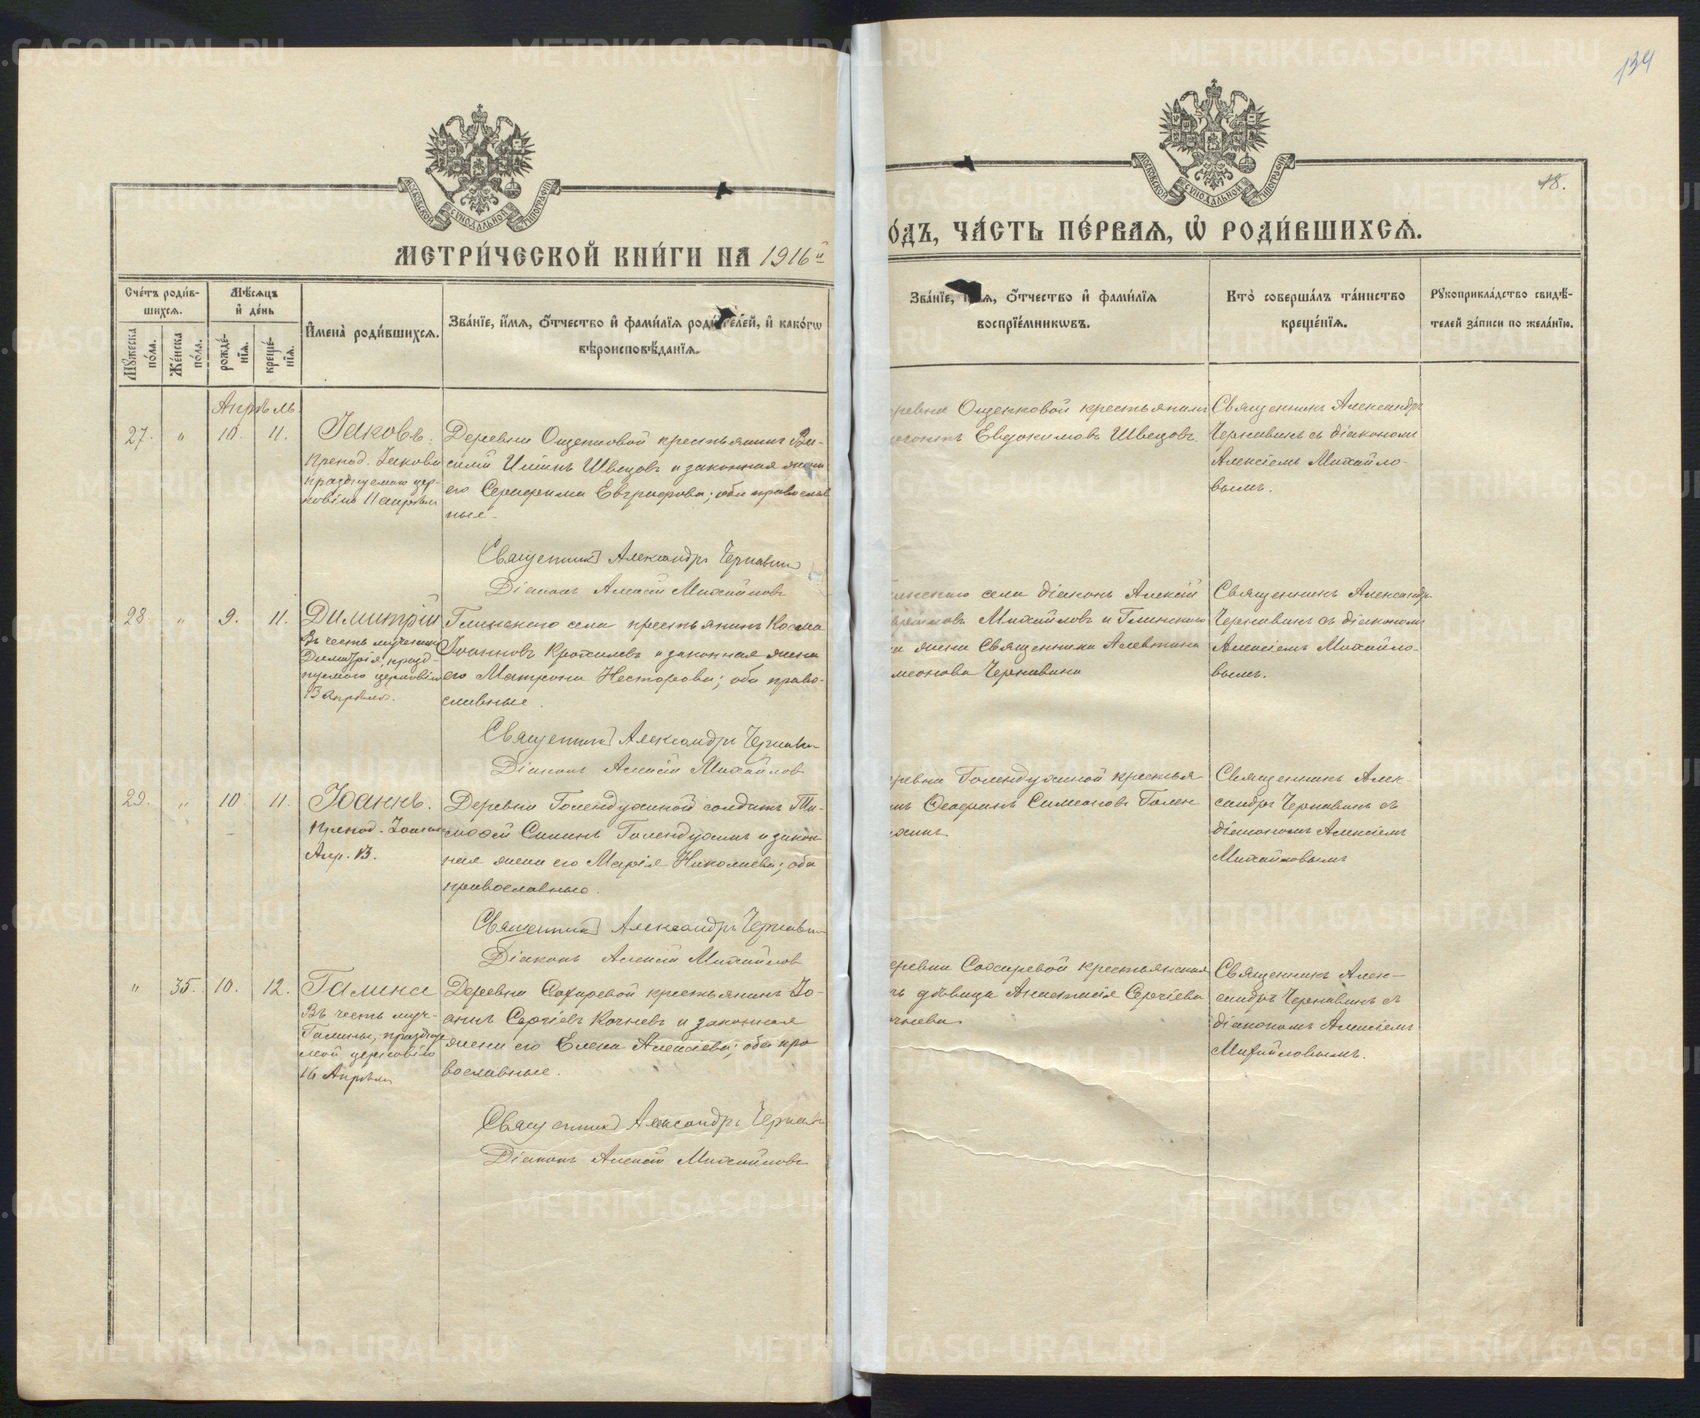 134
18.
МЕТРИ́ЧЕСКОЙ КНИ́ГИ НА 1916й
ОДЪ, ЧА́СТЬ ПЕ́РВАЯ, Ѡ РОДИ́ВШИХСЯ.
МОСКОВСКОЙ СѴНОДАЛЬНОЙ ТИПОГРАФІИ
МОСКОВСКОЙ СѴНОДАЛЬНОЙ ТИПОГРАФІИ
Сче́тъ роди́в-
шихся.
Мꙋ́жеска по́ла.
Же́нска по́ла.
Мѣ́сяцъ
и҆ де́нь
рожде́-
нїя.
креще́-
нїя.
И҆мена̀ роди́вшихся.
Зва́нїе, и҆́мя, ѻ҆́тчество и҆ фами́лїя роди́телей, и҆ како́гѡ
вѣроисповѣ́данїя.
Зва́нїе, и҆́мя, ѻ҆́тчество и҆ фами́лїя
воспрїе́мникѡвъ.
Кто̀ соверша́лъ та́инство
креще́нїя.
Рꙋкоприкла́дство свидѣ́-
телей за́писи по жела́нїю.
Апрѣль
27. " 10. 11. Іаковъ.
Препод. Іакова
празднуемаго цер-
ковію 11 апрѣля
Деревни Ощепковой крестьянинъ Ва-
силій Илiинъ Швецовъ и законная жена
его Серафима Евграфова; оба православ
ные.
Священникъ Александръ Чернавин
Діаконъ Алексій Михайловъ
ревни Ощепковой крестьянинъ
Евдокимовъ Швецовъ.
Священникъ Александръ
Чернавинъ съ діакономъ
Алексіемъ Михайло-
вымъ.
28. " 9. 11. Димитрій
Въ честь мученика
Димитрія, празд-
нуемаго церковію
13 апрѣля.
Глинскаго села крестьянинъ Косма
Іоанновъ Крохалевъ и законная жена
его Матрона Несторова; оба право-
славные.
Священникъ Александръ Чернави
Діаконъ Алексій Михайлов
линскаго села діаконъ Алексій
Михайловъ и Глинскаго
жена священника Алевтина
имеонова Чернавина
Священникъ Александръ
Чернавинъ съ діакономъ
Алексіемъ Михайло-
вымъ.
29. " 10. 11. Іоаннъ.
Препод. Іоанна
Апр. 13.
Деревни Голендухиной солдатъ Ти-
моѳей Силинъ Голендухинъ и закон-
ная жена его Марія Николаева; оба
православные.
Священникъ Александръ Чернави
Діаконъ Алексій Михайлов
ревни Голендухиной крестья
нъ Симеоновъ Голен
ухинъ.
Священникъ Алек-
сандръ Чернавинъ съ
діакономъ Алексіемъ
Михайловымъ
" 35. 10. 12. Галина
Въ честь муч.
Галины, празднуе
мой церковію
16 Апрѣля
Деревни Сохаревой крестьянинъ Іо-
аннъ Сергіевъ Кочневъ и законная
жена его Елена Алексіева; оба пра
вославные.
Священникъ Александръ Чернав
Діаконъ Алексій Михайловъ
еревни Сохаревой крестьянская
ь дѣвица Анастасія Сергіева
очнева
Священникъ Алек-
сандръ Чернавинъ съ
діакономъ Алексіемъ
Михайловымъ.
METRIKI.GASO-URAL.RU